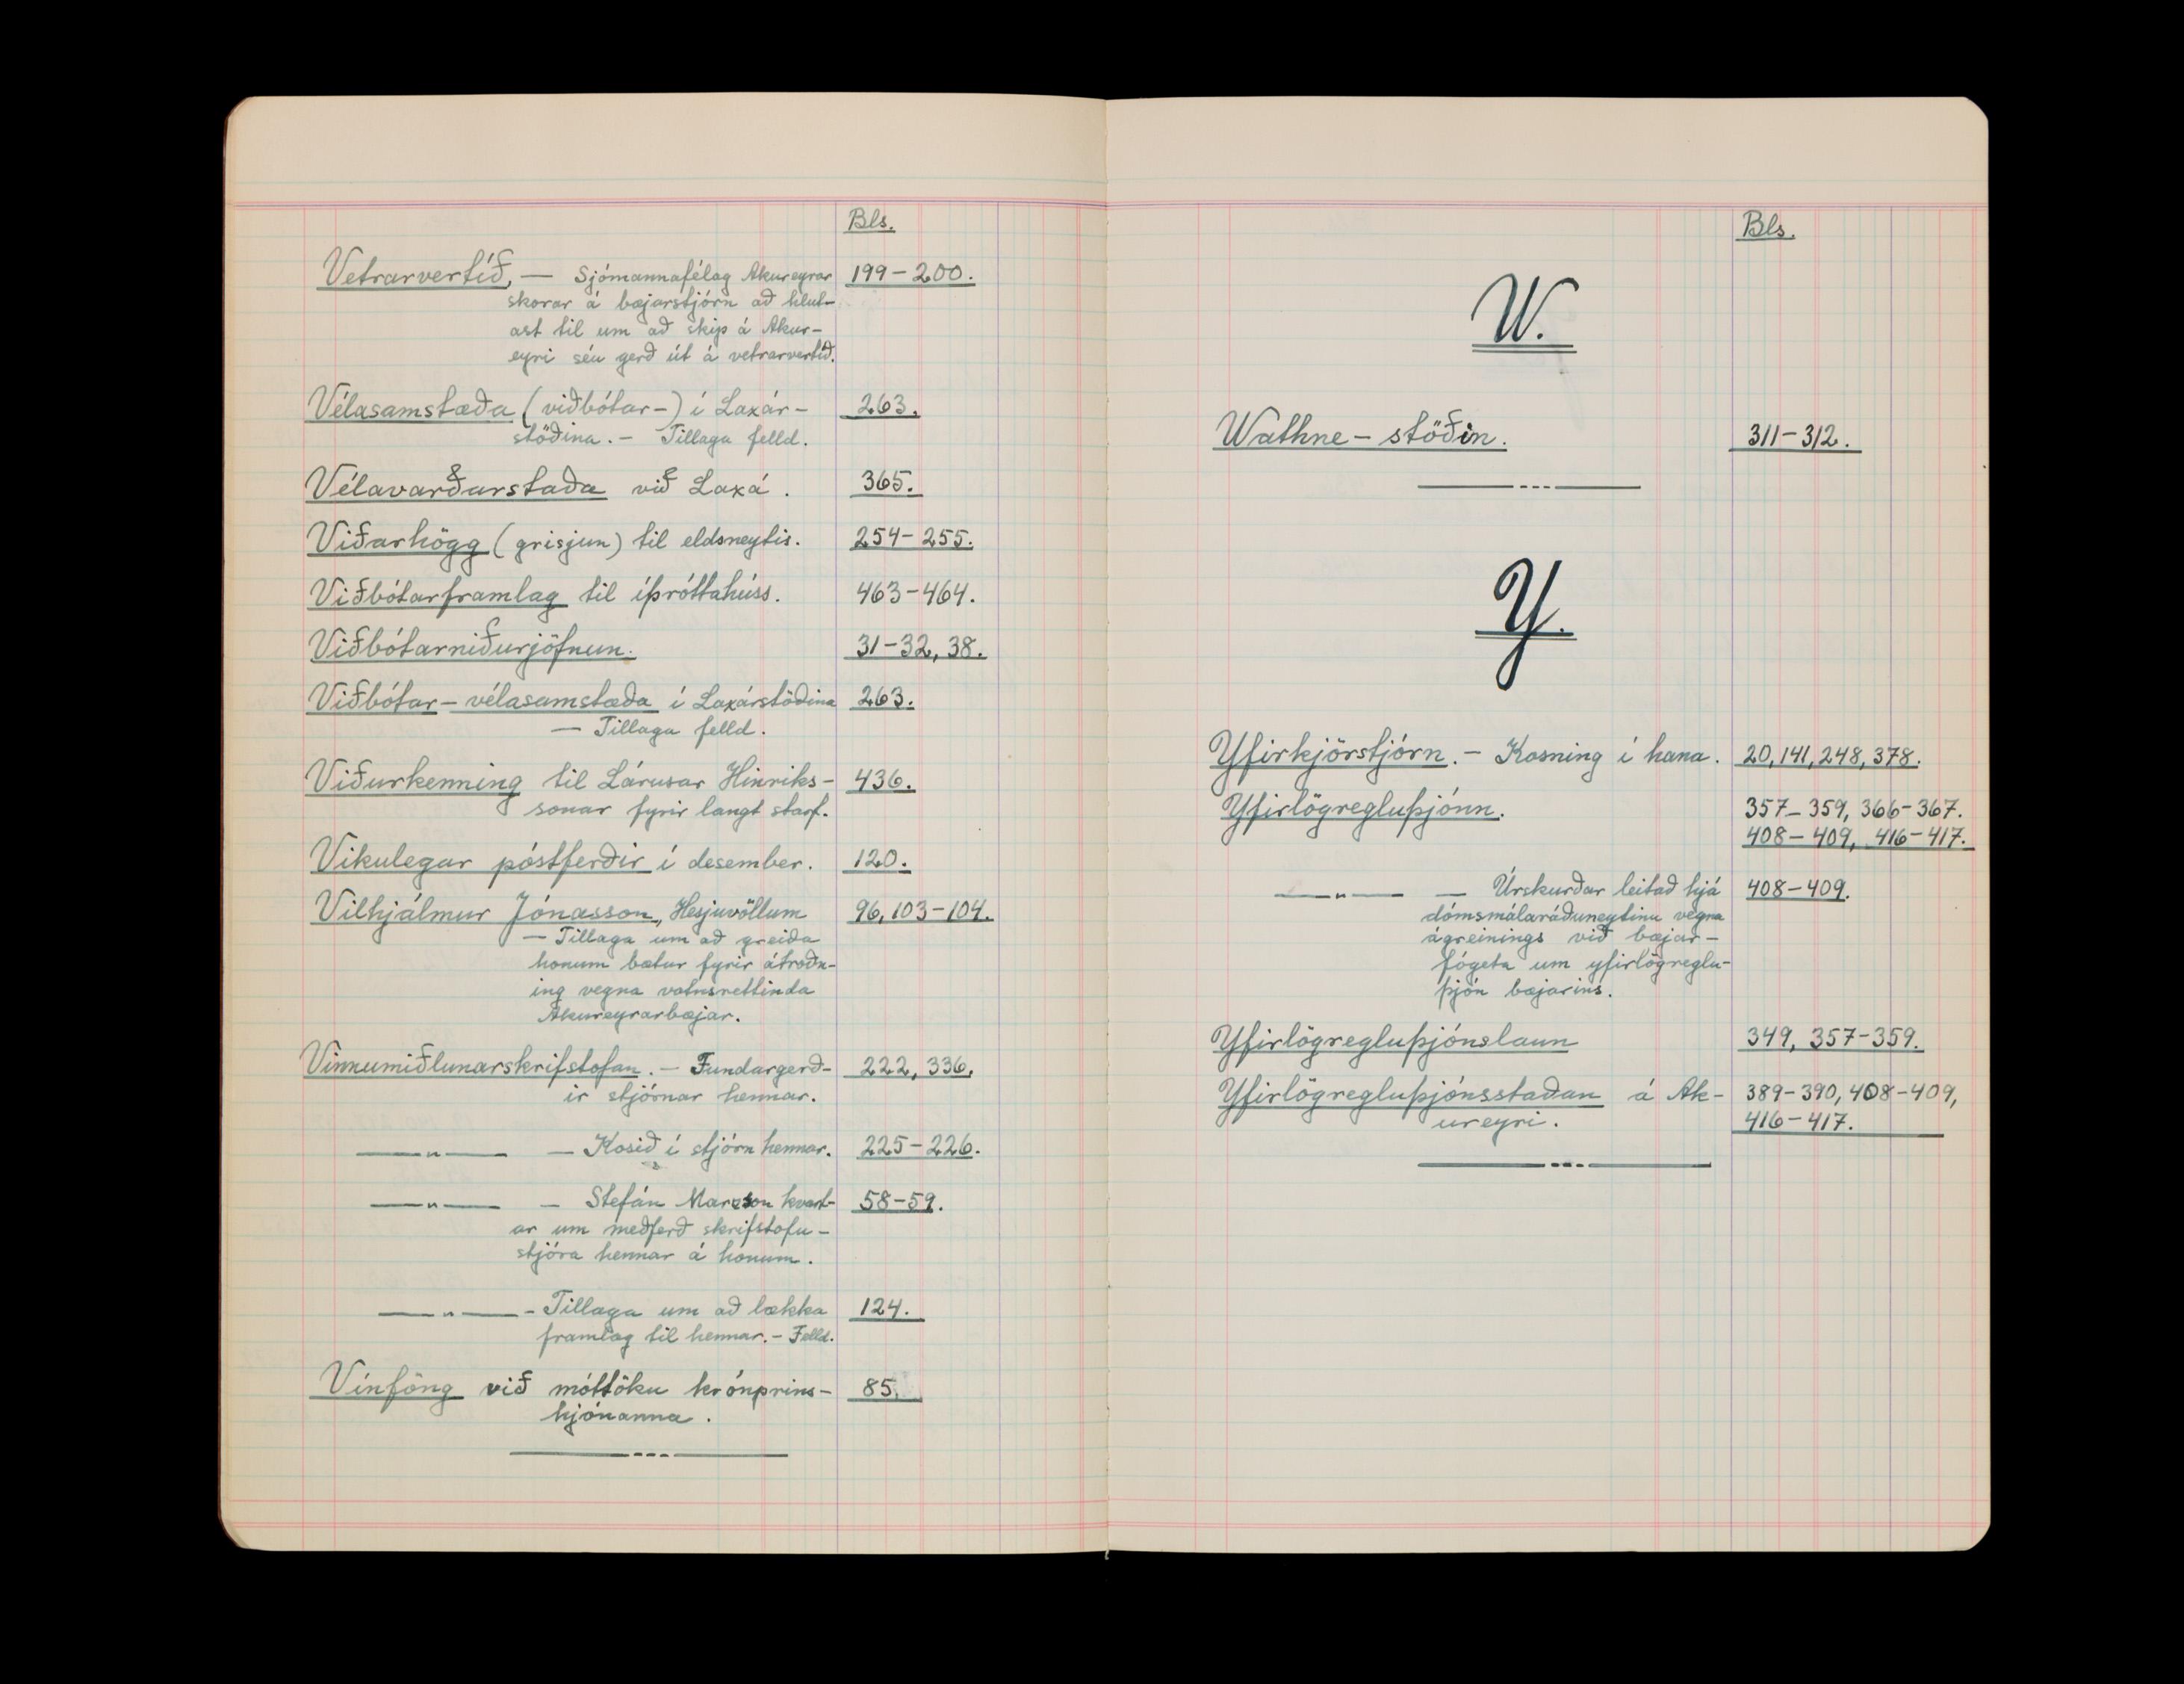 Bls.
Vetrarvertíð, — Sjómannafélag Akureyrar 199-200.
skorar á bæjarstjórn að hlut-
ast til um að skip á Akur-
eyri séu gerð út á vetrarvertíð.
Vélasamstæða (viðbótar-) í Laxár- 263.
stöðina. - Tillaga felld.
Vélavarðarstaða við Laxá. 365.
Viðarhögg (grisjun) til eldsneytis. 254-255.
Viðbótarframlag til íþróttahúss. 463-464.
Viðbótarniðurjöfnun. 31-32, 38.
Viðbótar-vélasamstæða í Laxárstöðina 263.
— Tillaga felld.
Viðurkenning til Lárusar Hinriks- 436.
sonar fyrir langt starf.
Vikulegar póstferðir í desember. 120.
Vilhjálmur Jónasson, Hesjuvöllum 96, 103-104.
— Tillaga um að greiða
honum bætur fyrir átroðn-
ing vegna vatnsréttinda
Akureyrarbæjar.
Vinnumiðlunarskrifstofan. - Fundargerð- 222, 336.
ir stjórnar hennar.
—„— — Kosið í stjórn hennar. 225-226.
—„— — Stefán Marzson kvart- 58-59.
ar um meðferð skrifstofu-
stjóra hennar á honum.
—„— - Tillaga um að lækka 124.
framlag til hennar. - Felld.
Vínföng við móttöku krónprins- 85.
hjónanna.
Bls.
W.
Wathne-stöðin. 311-312.
Y.
Yfirkjörstjórn. - Kosning í hana. 20, 141, 248, 378.
Yfirlögregluþjónn. 357-359, 366-367.
408-409, 416-417.
—„— — Úrskurðar leitað hjá 408-409.
dómsmálaráðuneytinu vegna
ágreinings við bæjar-
fógeta um yfirlögreglu-
þjón bæjarins.
Yfirlögregluþjónslaun 349, 357-359.
Yfirlögregluþjónsstaðan á Ak- 389-390, 408-409,
ureyri. 416-417.